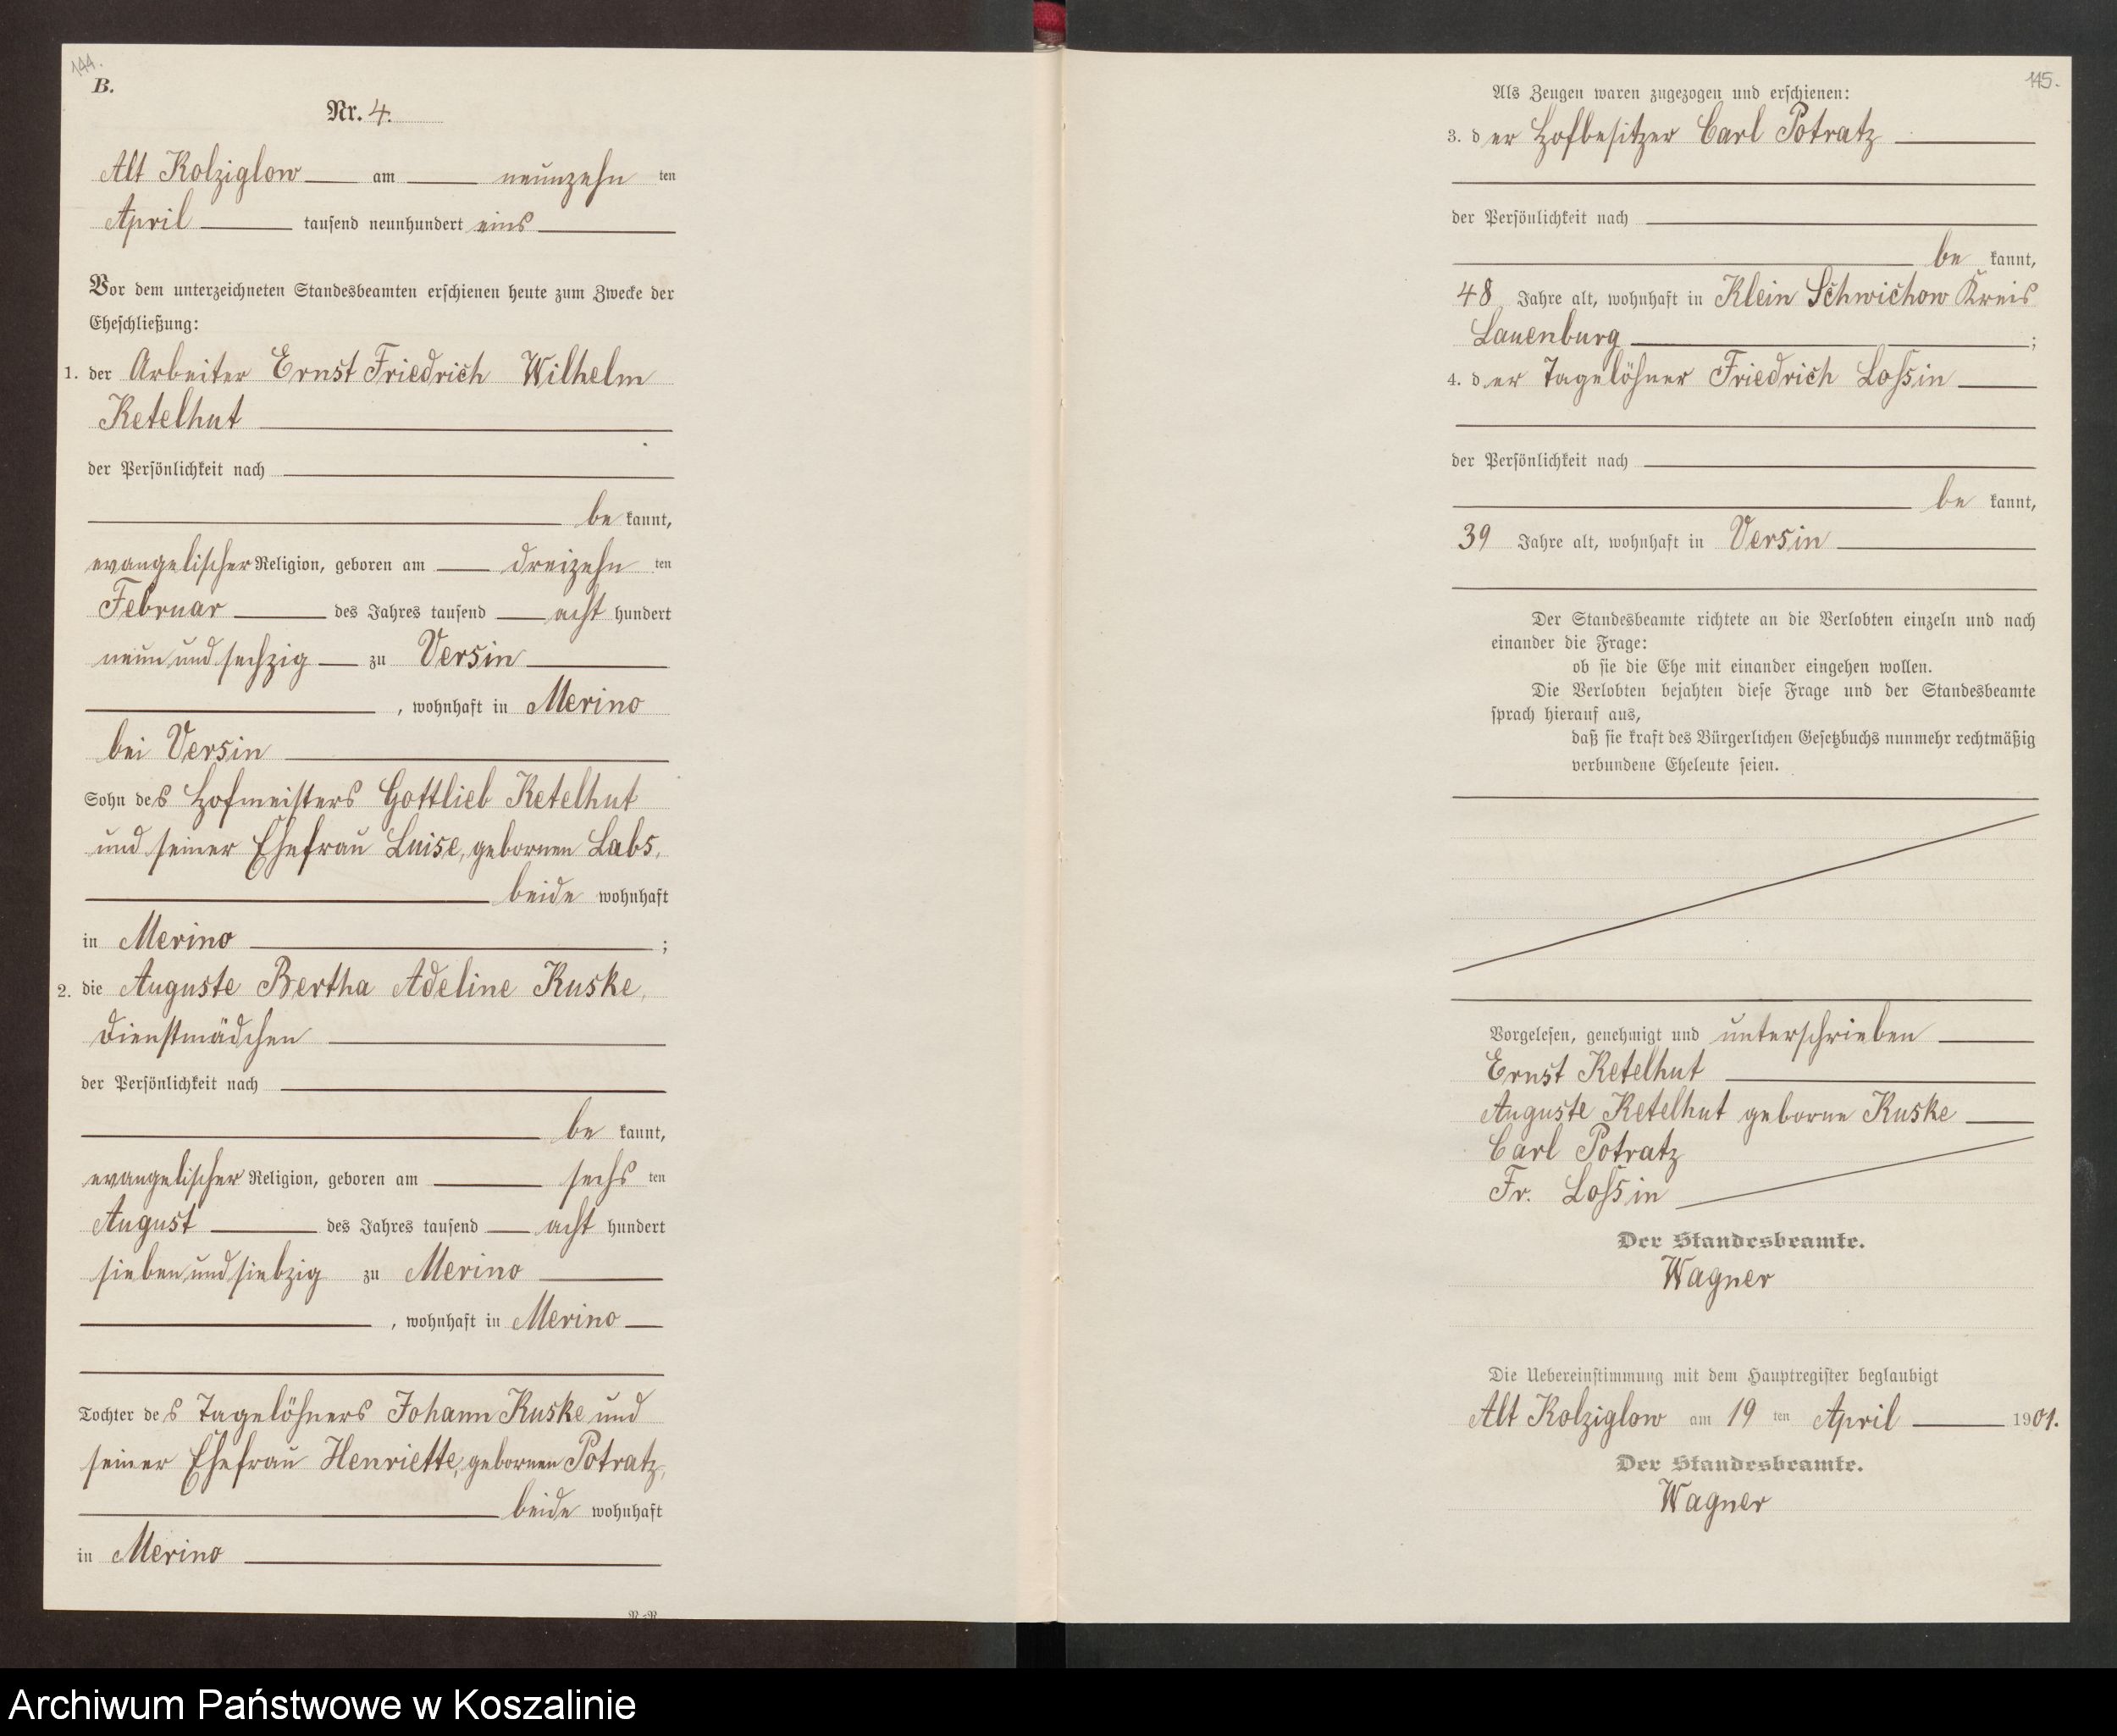 144.
B.
Nr. 4.
Alt Kolziglow am neunzehn ten
April tausend neunhundert eins
Vor dem unterzeichneten Standesbeamten erschienen heute zum Zwecke der
Eheschließung:
1. der Arbeiter Ernst Friedrich Wilhelm
Ketelhut
der Persönlichkeit nach
be kannt,
evangelischer Religion, geboren am dreizehn ten
Februar des Jahres tausend acht hundert
neun und sechzig zu Versin
, wohnhaft in Merino
bei Versin
Sohn des Hofmeisters Gottlieb Ketelhut
und seiner Ehefrau Luise, gebornen Labs,
beide wohnhaft
in Merino ;
2. die Auguste Bertha Adeline Kuske,
Dienstmädchen
der Persönlichkeit nach
be kannt,
evangelischer Religion, geboren am sechs ten
August des Jahres tausend acht hundert
sieben und siebzig zu Merino
, wohnhaft in Merino
Tochter des Tagelöhners Johann Kuske und
seiner Ehefrau Henriette, gebornen Potratz,
beide wohnhaft
in Merino
145.
Als Zeugen waren zugezogen und erschienen:
3. der Hofbesitzer Carl Potratz
der Persönlichkeit nach
be kannt,
48 Jahre alt, wohnhaft in Klein Schwichow Kreis
Lauenburg ;
4. der Tagelöhner Friedrich Lossin
der Persönlichkeit nach
be kannt,
39 Jahre alt, wohnhaft in Versin
Der Standesbeamte richtete an die Verlobten einzeln und nach
einander die Frage:
ob sie die Ehe mit einander eingehen wollen.
Die Verlobten bejahten diese Frage und der Standesbeamte
sprach hierauf aus,
daß sie kraft des Bürgerlichen Gesetzbuchs nunmehr rechtmäßig
verbundene Eheleute seien.
Vorgelesen, genehmigt und unterschrieben
Ernst Ketelhut
Auguste Ketelhut geborne Kuske
Carl Potratz
Fr. Lossin
Der Standesbeamte.
Wagner
Die Uebereinstimmung mit dem Hauptregister beglaubigt
Alt Kolziglow am 19 ten April 1901.
Der Standesbeamte.
Wagner
Archiwum Państwowe w Koszalinie